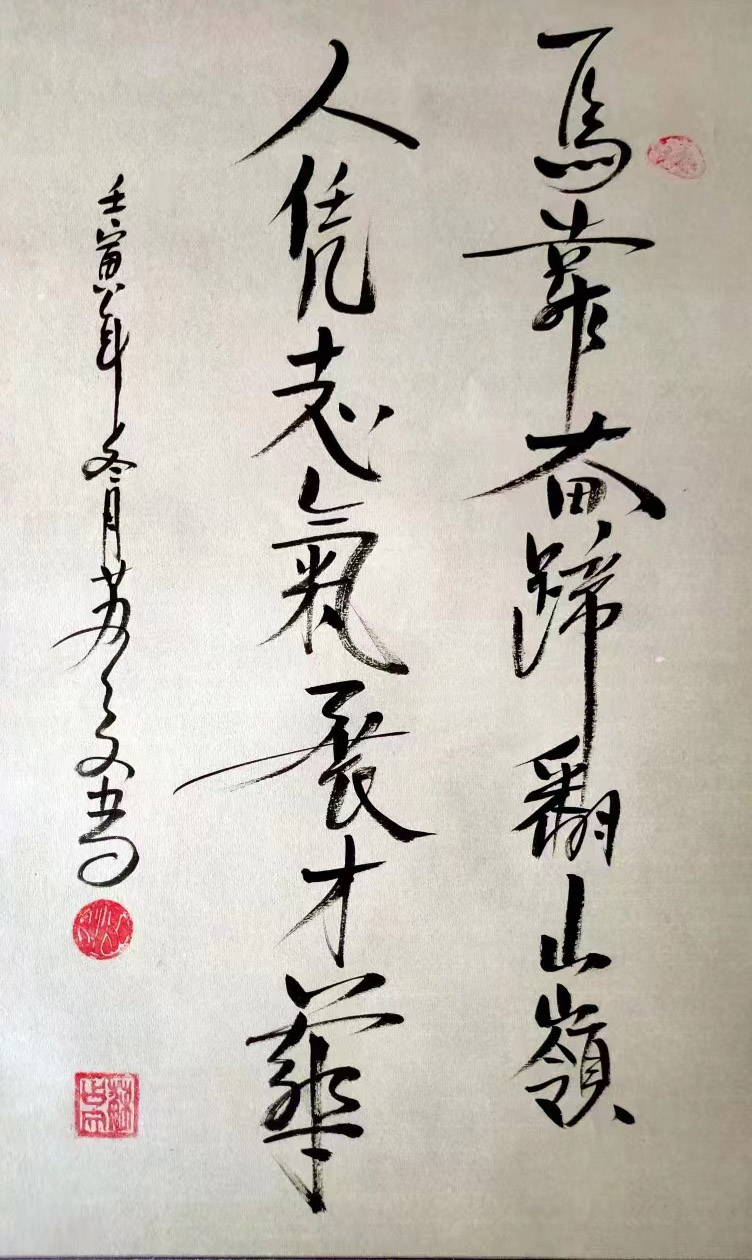 馬靠奋蹄翻山嶺
人凭志氣展才華
壬寅年冬月苏文書